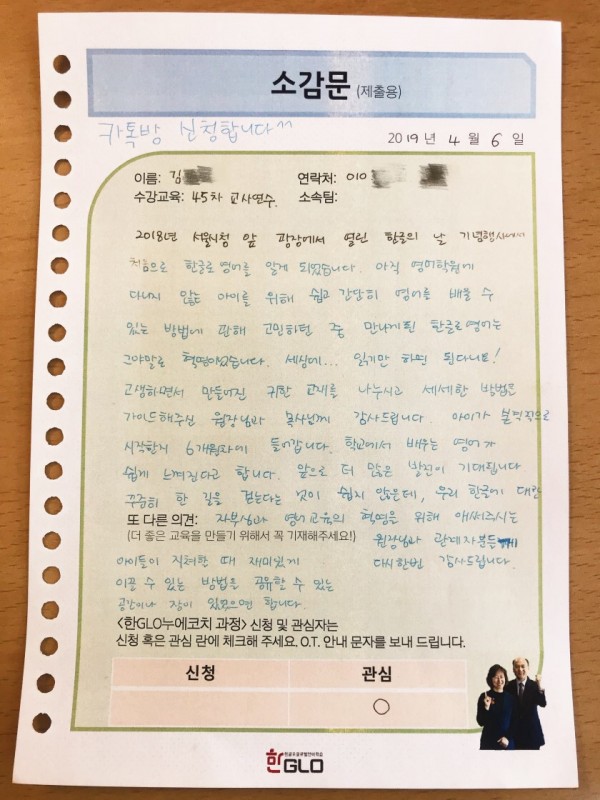 소감문 (제출용)
카톡방 신청합니다^^
2019년 4월 6일
이름: 김
연락처: 010
수강교육: 45차 교사연수.
소속팀:
2018년 서울시청 앞 광장에서 열린 한글의 날 기념행사에서
처음으로 한글로영어를 알게 되었습니다. 아직 영어학원에
다니지 않는 아이를 위해 쉽고 간단히 영어를 배울 수
있는 방법에 관해 고민하던 중 만나게된 한글로영어는
그야말로 혁명이었습니다. 세상에... 읽기만 하면 된다니요!
고생하면서 만들어진 귀한 교재를 나누시고 세세한 방법을
가이드해주신 원장님과 목사님께 감사드립니다. 아이가 본격적으로
시작한지 6개월차에 들어갑니다. 학교에서 배우는 영어가
쉽게 느껴진다고 합니다. 앞으로 더 많은 발전이 기대됩니다
꾸준히 한 길을 걷는다는 것이 쉽지 않은데, 우리 한글에 대한
또 다른 의견: 자부심과 영어교육의 혁명을 위해 애써주시는
(더 좋은 교육을 만들기 위해서 꼭 기재해주세요!) 원장님과 관계자분들께
아이들이 지쳐할 때 재미있게 다시한번 감사드립니다.
이끌 수 있는 방법을 공유할 수 있는
공간이나 장이 있었으면 합니다.
<한GLO누에코치 과정> 신청 및 관심자는
신청 혹은 관심 란에 체크해 주세요. O.T. 안내 문자를 보내 드립니다.
신청 관심
○
한GLO